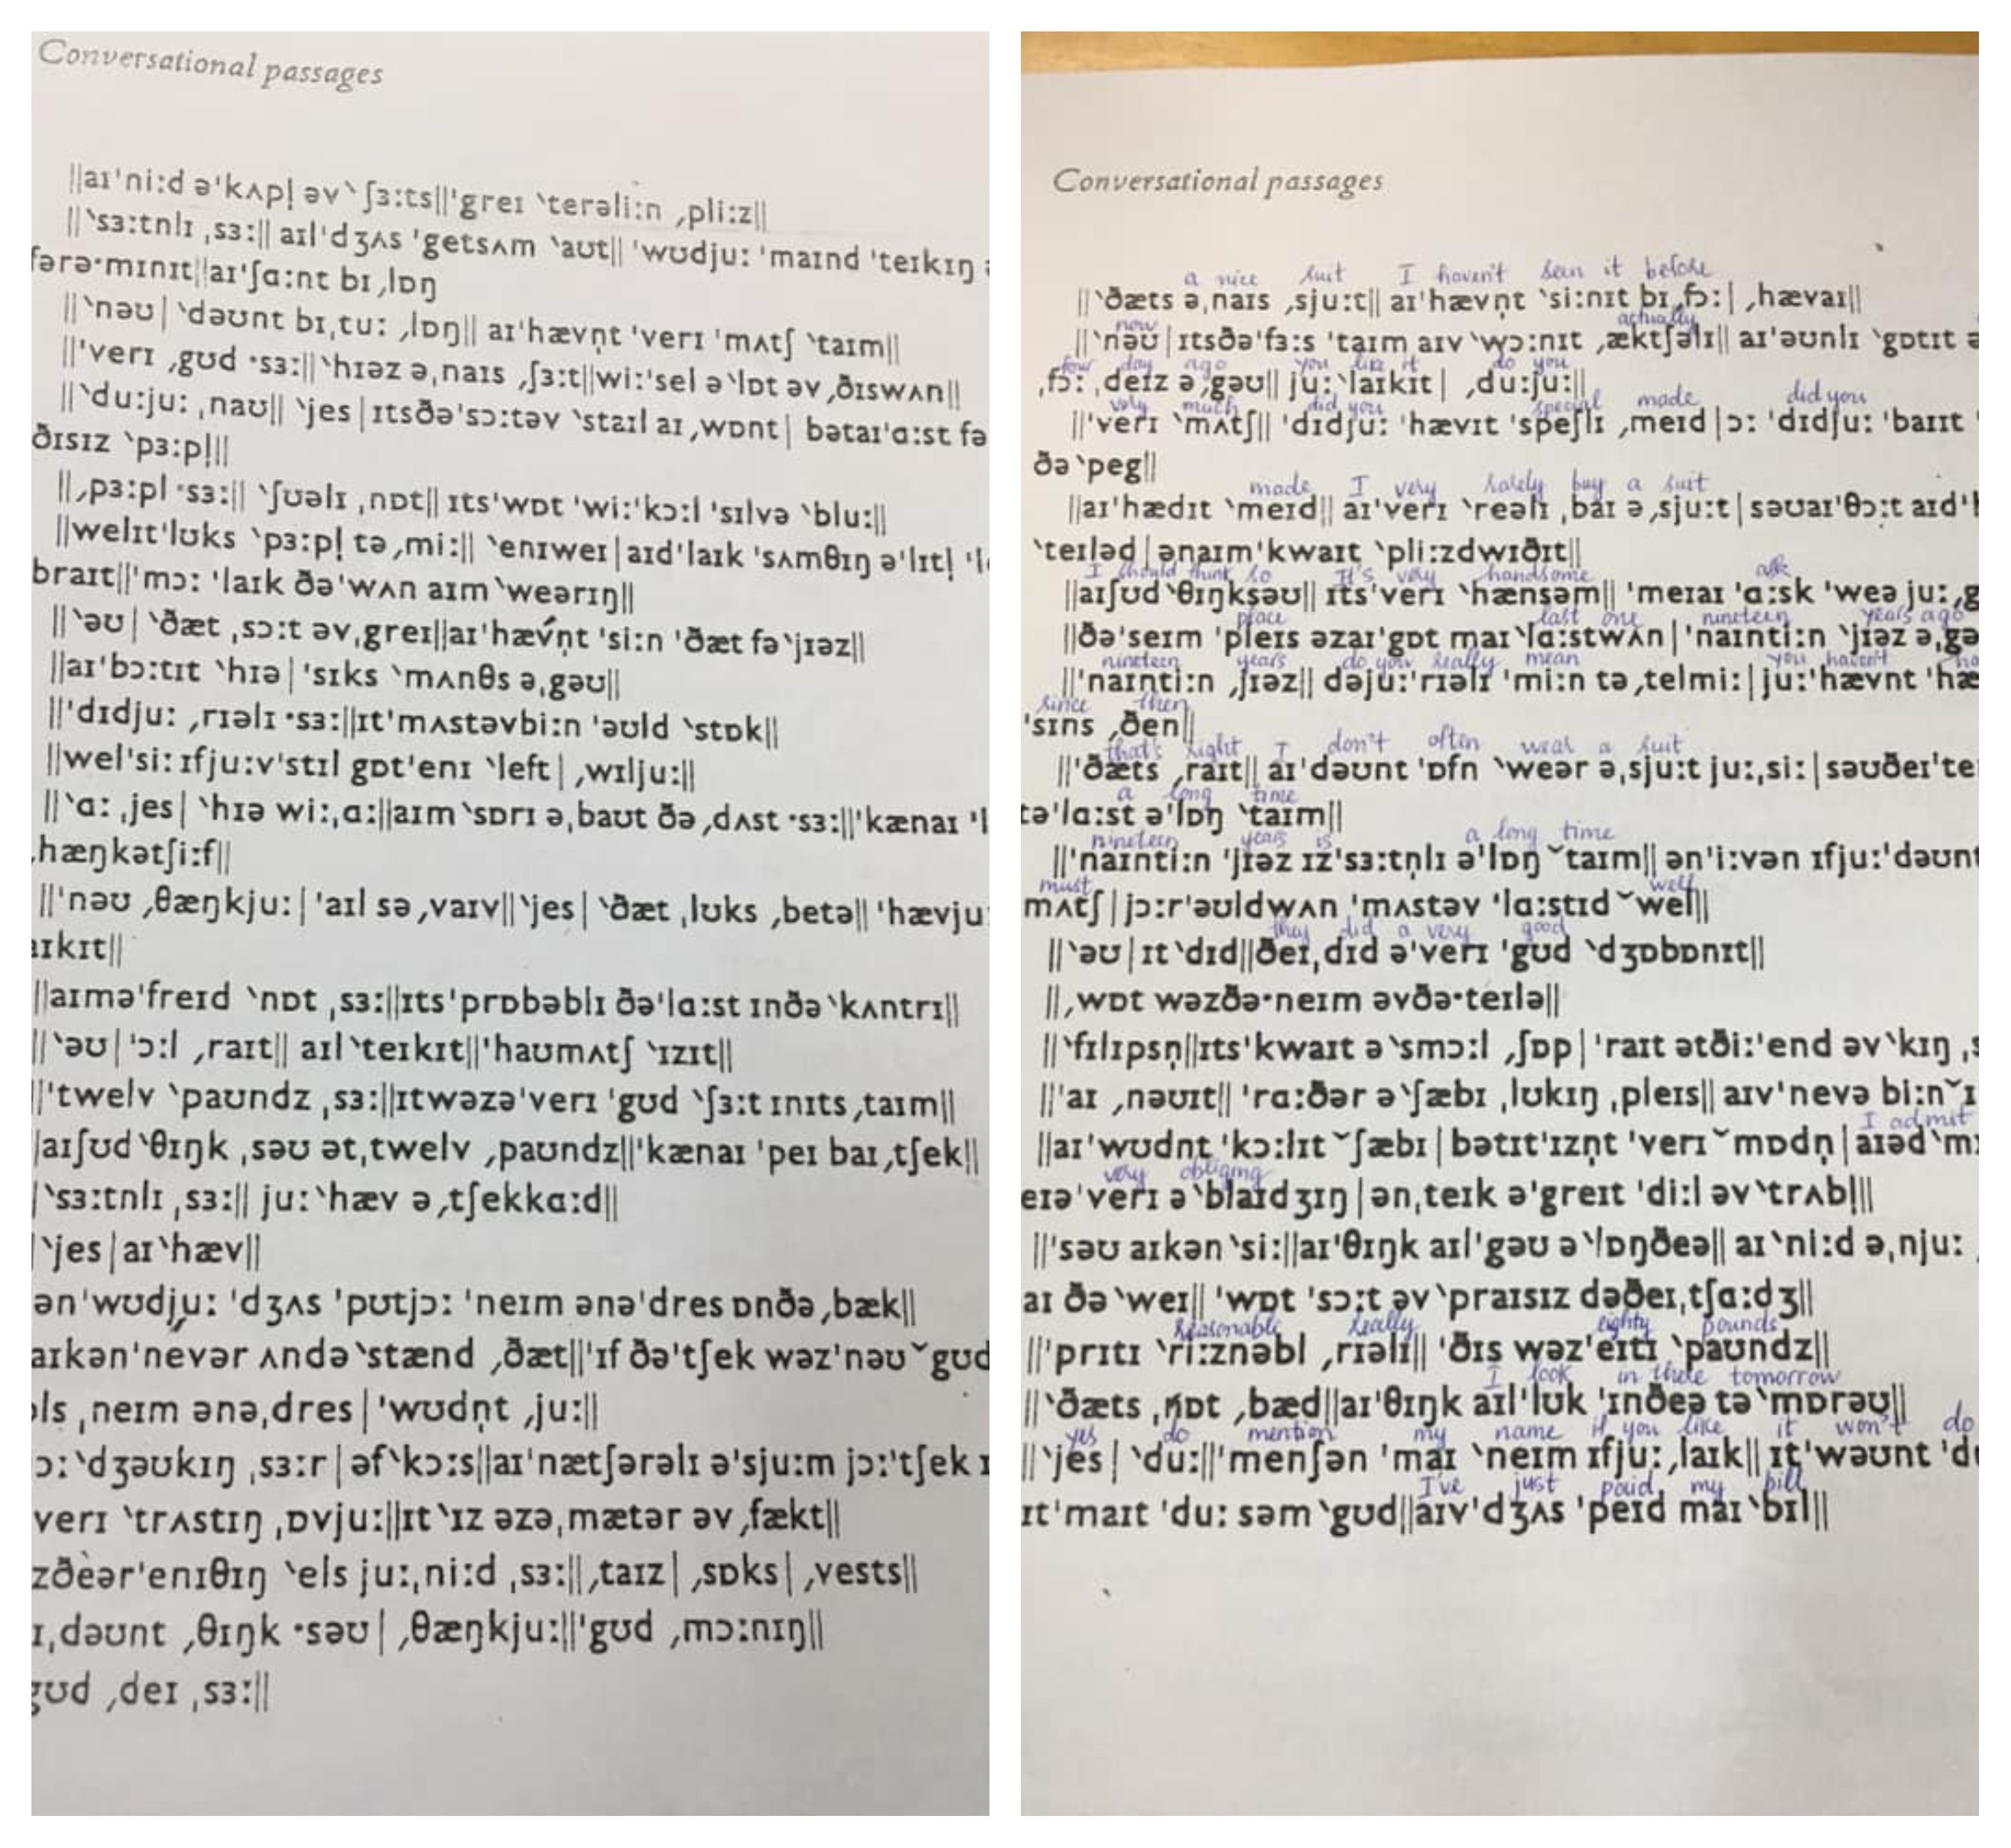 Conversational passages
||aɪˈniːd əˈkʌpl̩ əvˋʃɜːts||ˈgreɪ ˋterəliːn ˏpliːz||
||ˋsɜːtnlɪ ˌsɜː|| aɪlˈdʒʌs ˈgetsʌm ˋaʊt|| ˈwʊdjuː ˈmaɪnd ˈteɪkɪŋ
fərə·mɪnɪt||aɪˈʃɑːnt bɪˏlɒŋ
||ˋnəʊ| ˋdəʊnt bɪˌtuː ˏlɒŋ|| aɪˈhævn̩t ˈverɪ ˈmʌtʃ ˋtaɪm||
||ˈverɪ ˏgʊd ·sɜː||ˋhɪəz əˌnaɪs ˏʃɜːt||wiːˈsel əˋlɒt əvˏðɪswʌn||
||ˋduːjuː ˌnaʊ|| ˋjes|ɪtsðəˈsɔːtəv ˋstaɪl aɪˏwɒnt| bətaɪˈɑːst fə
ðɪsɪz ˋpɜːpl̩||
||ˏpɜːpl ·sɜː|| ˋʃʊəlɪ ˌnɒt|| ɪtsˈwɒt ˈwiːˈkɔːl ˈsɪlvə ˋbluː||
||welɪtˈlʊks ˋpɜːpl̩ təˏmiː|| ˋenɪweɪ|aɪdˈlaɪk ˈsʌmθɪŋ əˈlɪtl̩
braɪt||ˈmɔː ˈlaɪk ðəˈwʌn aɪm ˋweərɪŋ||
||ˋəʊ| ˋðæt ˌsɔːt əvˌgreɪ||aɪˈhævn̩t ˈsiːn ˈðæt fəˋjɪəz||
||aɪˈbɔːtɪt ˋhɪə|ˈsɪks ˋmʌnθs əˌgəʊ||
||ˈdɪdjuː ˏrɪəlɪ ·sɜː||ɪtˈmʌstəvbiːn ˈəʊld ˋstɒk||
||welˈsiː ɪfjuːvˈstɪl gɒtˈenɪ ˋleft| ˏwɪljuː||
||ˋɑː ˌjes| ˋhɪə wiːˌɑː||aɪmˋsɒrɪ əˌbaʊt ðəˏdʌst ·sɜː||ˈkænaɪ
hæŋkətʃiːf||
||ˈnəʊ ˏθæŋkjuː|ˈaɪl səˏvaɪv||ˋjes| ˋðæt ˌlʊks ˏbetə||ˈhævju
aɪkɪt||
||aɪməˈfreɪd ˋnɒt ˌsɜː||ɪtsˈprɒbəblɪ ðəˈlɑːst ɪnðəˋkʌntrɪ||
||ˋəʊ|ˈɔːl ˏraɪt|| aɪlˋteɪkɪt||ˈhaʊmʌtʃ ˋɪzɪt||
|ˈtwelv ˋpaʊndz ˌsɜː||ɪtwəzəˈverɪ ˈgʊd ˋʃɜːt ɪnɪtsˏtaɪm||
|aɪʃʊdˋθɪŋk ˌsəʊ ətˌtwelv ˏpaʊndz||ˈkænaɪ ˈpeɪ baɪˏtʃek||
|ˋsɜːtnlɪ ˌsɜː|| juːˋhæv əˏtʃekkɑːd||
|ˋjes|aɪˋhæv||
ənˈwʊdjuː ˈdʒʌs ˈpʊtjɔː ˈneɪm ənəˈdres ɒnðəˏbæk||
aɪkənˈnevər ʌndəˋstænd ˏðæt||ˈɪf ðəˈtʃek wəzˈnəʊˇgʊd
ls ˌneɪm ənəˌdres|ˈwʊdn̩t ˏjuː||
ɔːˋdʒəʊkɪŋ ˌsɜːr|əfˋkɔːs||aɪˈnætʃərəlɪ əˈsjuːm jɔːˈtʃek
verɪ ˋtrʌstɪŋ ˌɒvjuː||ɪtˋɪz əzəˌmætər əvˏfækt||
zðeərˈenɪθɪŋ ˋels juːˌniːd ˌsɜː||ˏtaɪz| ˏsɒks| ˏvests||
ɪˌdəʊnt ˏθɪŋk ·səʊ| ˏθæŋkjuː||ˈgʊd ˏmɔːnɪŋ||
gʊd ˏdeɪ ˌsɜː||
Conversational passages
a nice suit I haven't seen it before
||ˋðæts əˌnaɪs ˏsjuːt|| aɪˈhævn̩t ˋsiːnɪt bɪˌfɔː| ˏhævaɪ||
now actually
||ˋnəʊ|ɪtsðəˈfɜːs ˈtaɪm aɪvˋwɔːnɪt ˏæktʃəlɪ|| aɪˈəʊnlɪ ˋgɒtɪt
few day ago you like it do you
ˏfɔː ˌdeɪz əˏgəʊ|| juːˋlaɪkɪt| ˏduːjuː||
very much did you special made did you
||ˈverɪ ˋmʌtʃ|| ˈdɪdjuː ˈhævɪt ˈspeʃlɪ ˏmeɪd|ɔː ˈdɪdjuː ˈbaɪɪt
ðəˋpeg||
made I very rarely buy a suit
||aɪˈhædɪt ˋmeɪd|| aɪˈverɪ ˋreəlɪ ˌbaɪ əˏsjuːt|səʊaɪˈθɔːt aɪdˈ
ˋteɪləd|ənaɪmˈkwaɪt ˋpliːzdwɪðɪt||
I should think so It's very handsome ask
||aɪʃʊdˋθɪŋksəʊ|| ɪtsˈverɪ ˋhænsəm|| ˈmeɪaɪ ˈɑːsk ˈweə juːˏg
place last one nineteen years ago
||ðəˈseɪm ˈpleɪs əzaɪˈgɒt maɪˋlɑːstwʌn|ˈnaɪntiːn ˋjɪəz əˌgə
nineteen years do you really mean you haven't
||ˈnaɪntiːn ˏjɪəz|| dəjuːˈrɪəlɪ ˈmiːn təˏtelmiː|juːˈhævnt ˈhæ
since then
ˈsɪns ˏðen||
that's right I don't often wear a suit
||ˈðæts ˏraɪt|| aɪˈdəʊnt ˈɒfn ˋweər əˌsjuːt juːˌsiː|səʊðeɪˈte
a long time
təˈlɑːst əˈlɒŋ ˋtaɪm||
nineteen years is a long time
||ˈnaɪntiːn ˈjɪəz ɪzˈsɜːtn̩lɪ əˈlɒŋ ˇtaɪm|| ənˈiːvən ɪfjuːˈdəʊnt
must well
mʌtʃ|jɔːrˈəʊldwʌn ˈmʌstəv ˈlɑːstɪd ˇwel||
they did a very good
||ˋəʊ|ɪtˋdɪd||ðeɪˌdɪd əˈverɪ ˈgʊd ˋdʒɒbɒnɪt||
||ˏwɒt wəzðə·neɪm əvðə·teɪlə||
||ˋfɪlɪpsn̩||ɪtsˈkwaɪt əˋsmɔːl ˏʃɒp|ˈraɪt ətðiːˈend əvˋkɪŋ
||ˈaɪ ˏnəʊɪt|| ˈrɑːðər əˋʃæbɪ ˌlʊkɪŋ ˌpleɪs|| aɪvˈnevə biːnˇɪ
I admit
||aɪˈwʊdnt ˈkɔːlɪt ˇʃæbɪ|bətɪtˈɪzn̩t ˈverɪ ˇmɒdn̩|aɪədˋm
very obliging
eɪəˈverɪ əˋblaɪdʒɪŋ|ənˌteɪk əˈgreɪt ˈdiːl əvˋtrʌbl̩||
||ˈsəʊ aɪkənˋsiː||aɪˈθɪŋk aɪlˈgəʊ əˋlɒŋðeə|| aɪˋniːd əˌnjuː
aɪ ðəˋweɪ|| ˈwɒt ˈsɔːt əvˋpraɪsɪz dəðeɪˌtʃɑːdʒ||
reasonable really eighty pounds
||ˈprɪtɪ ˋriːznəbl ˏrɪəlɪ|| ˈðɪs wəzˈeɪtɪ ˋpaʊndz||
I look in there tomorrow
||ˋðæts ˌnɒt ˏbæd||aɪˈθɪŋk aɪlˈlʊk ˈɪnðeə təˋmɒrəʊ||
yes do mention my name if you like it won't do
||ˋjes| ˋduː||ˈmenʃən ˈmaɪ ˋneɪm ɪfjuːˏlaɪk|| ɪtˈwəʊnt ˈdu
I've just paid my bill
ɪtˈmaɪt ˈduː səmˋgʊd||aɪvˈdʒʌs ˈpeɪd maɪˋbɪl||